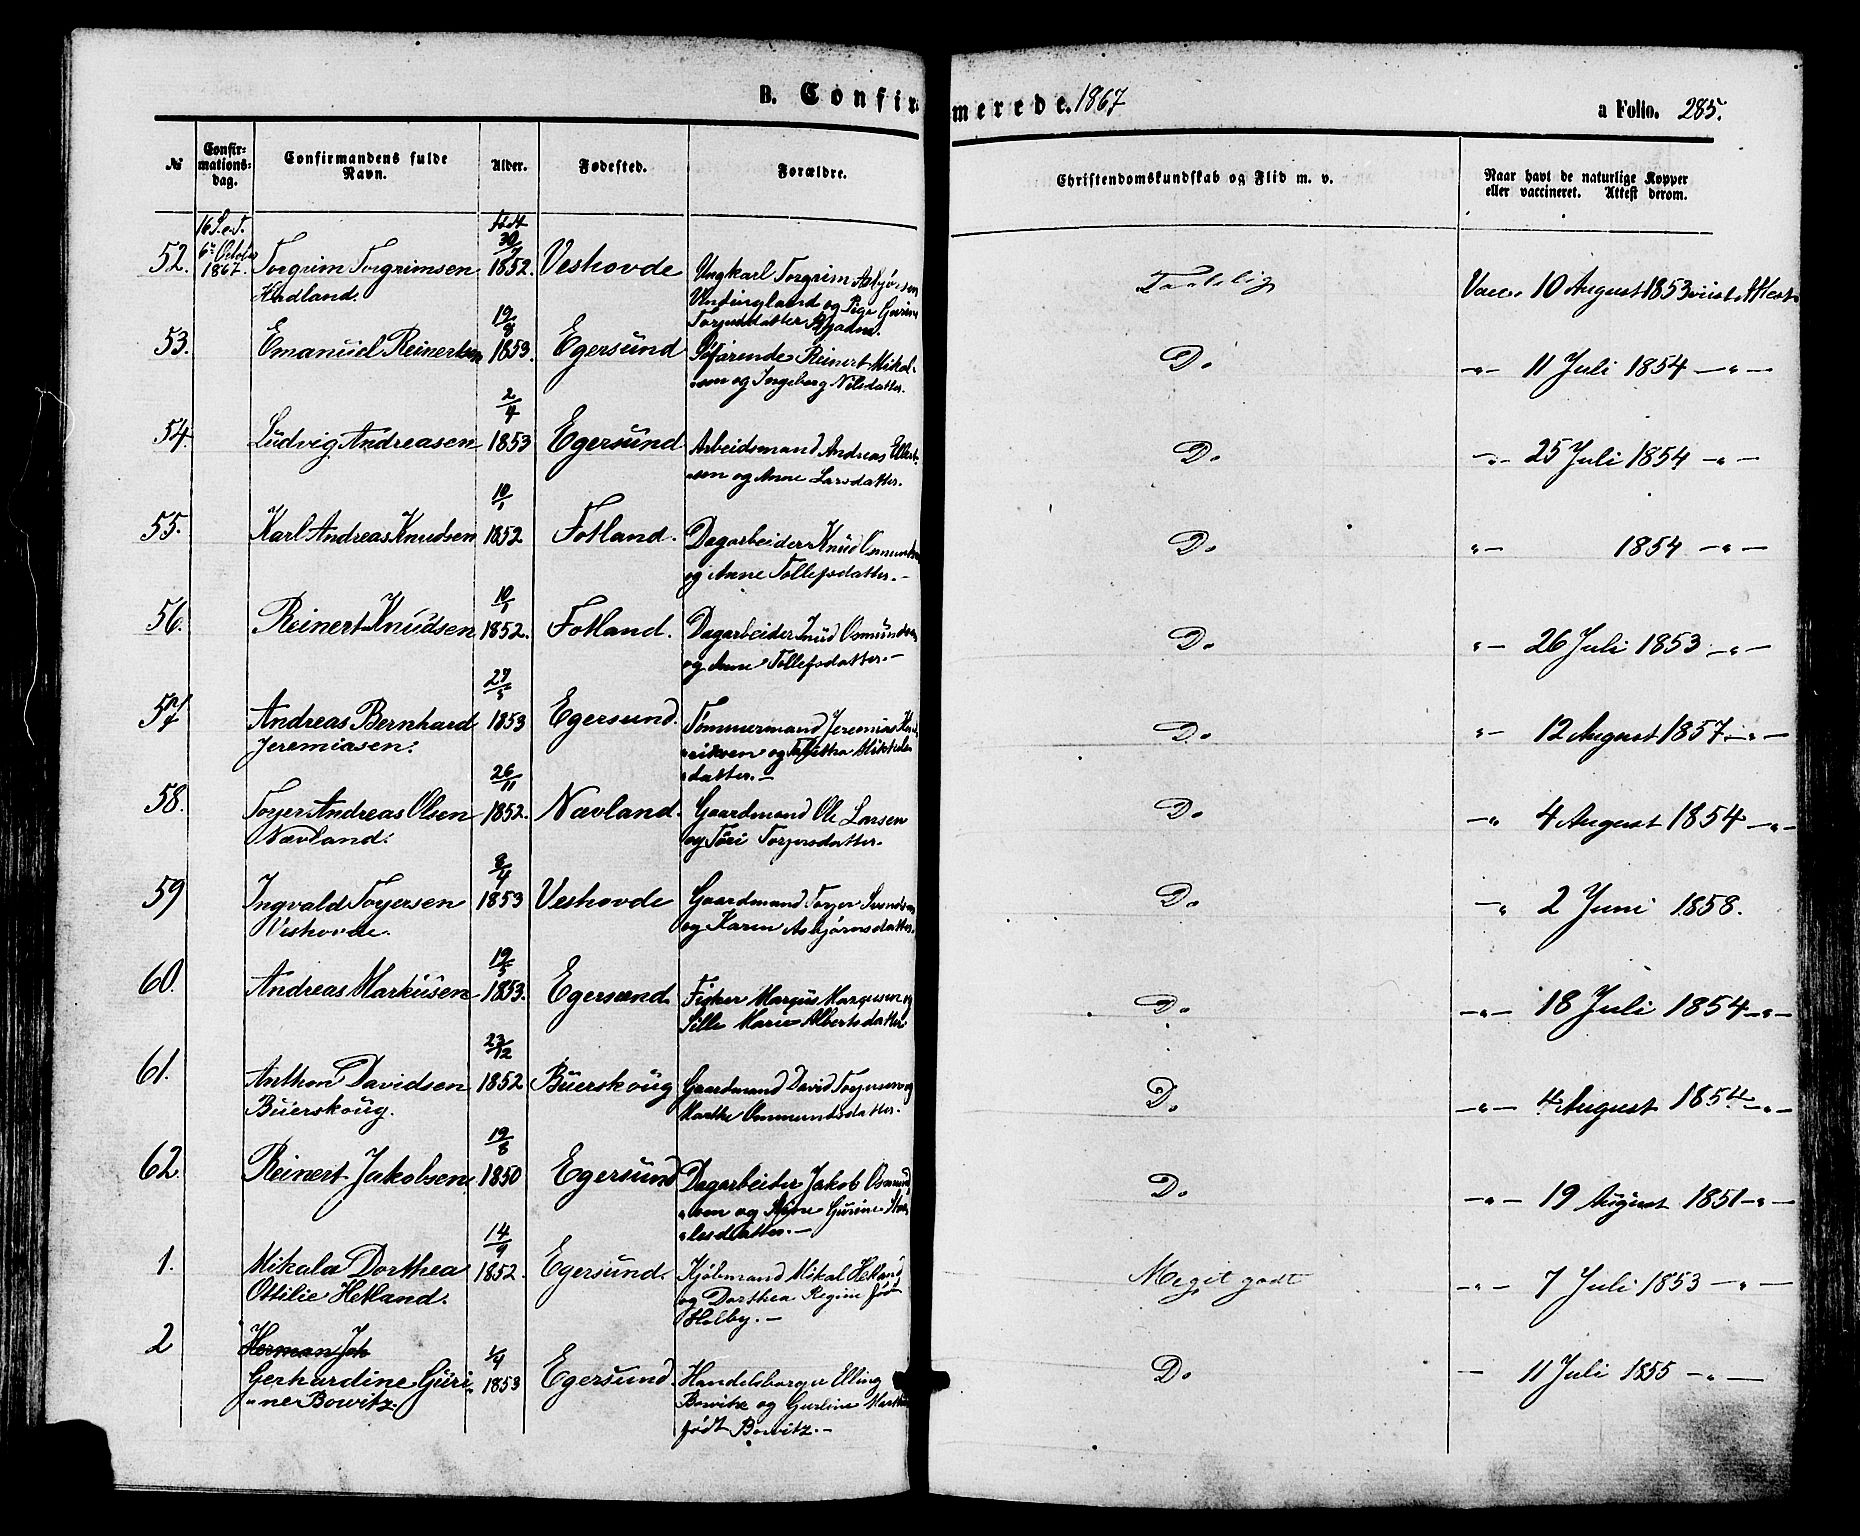 B. Confirmerede. 1867
a Folio. 285.
№
Confirmationsdag.
Confirmandens fulde Navn.
Alder.
Fødested.
Forældre.
Christendomskundskab og Flid m. v.
Naar havt de naturlige Kopper
eller vaccineret. Attest derom.
16 S. e. T.
6te October
1867.
født
52. Torgrim Torgrimsen 30/7 1852. Veshovde Ungkarl Torgrim Asbjørnsen Taalelig Vacc. 10 August 1853 viist Attest
Hadland. og Pige
53. Emanuel Reinertsen 19/8 1853. Egersund Søfarende Reinert Mikal- Do -"- 11 Juli 1854 -"-
sen og Ingeborg Nilsdatter.
54. Ludvig Andreasen 2/4 1853 Egersund Arbeidsmand Andreas Do -"- 25 Juli 1854 -"-
sen og Anne Larsdatter.
55. Karl Andreas Knudsen 10/1 1852 Fotland. Dagarbeider Knud Osmundsen Do "- 1854 -"-
og Anne Tollefsdatter.-
56. Reinert Knudsen 10/1 1852. Fotland. Dagarbeider Knud Osmundsen Do "- 26 Juli 1853 -"-
og Anne Tollefsdatter.-
57 Andreas Bernhard 27/5 1853 Egersund. Tømmermand Jeremias Hen- Do "- 12 August 1857 -"-
Jeremiasen. riksen og Tabitha Mikkels
datter.-
58. Torjer Andreas Olsen 26/11 1852. Nævland. Gaardmand Ole Larsen Do -" 4 August 1854 -"-
Nævland. og Tøri Torjersdatter.
59 Ingvald Torjersen 8/4 1853 Veshovde Gaardmand Torjer Svendsen Do -" 2 Juni 1858.
Veshovde. og Karen Asbjørnsdatter.
60. Andreas Markusen 19/5 1853. Egersund. Fisker Margus Margusen og Do -"- 18 Juli 1854 -"-
Sille Marie Albertsdatter
61. Anthon Davidsen 23/12 1852 Büerskoug Gaardmand David Torjusen og Do -"- 4 August 1854 -"-
Büerskoug. Marthe Ommundsdatter.
62. Reinert Jakobsen. 19/8 1850 Egersund Dagarbeider Jakob Osmund Do -"- 19 August 1851 -"-
sen og
datter.-
1. Mikala Dorthea 14/9 1852. Egersund. Kjøbmand Mikal Hetland Meget godt -"- 7 Juli 1853 -"-
Ottilie Hetland. og Dorthea Regine født
Helby.-
2 Herman Joh
Gerhardine Güri- 1/4 1853 Egersund. Handelsborger Elling Do - 11 Juli 1855 -"-
"ne Bowitz. Bowitz og
født Bowitz.-